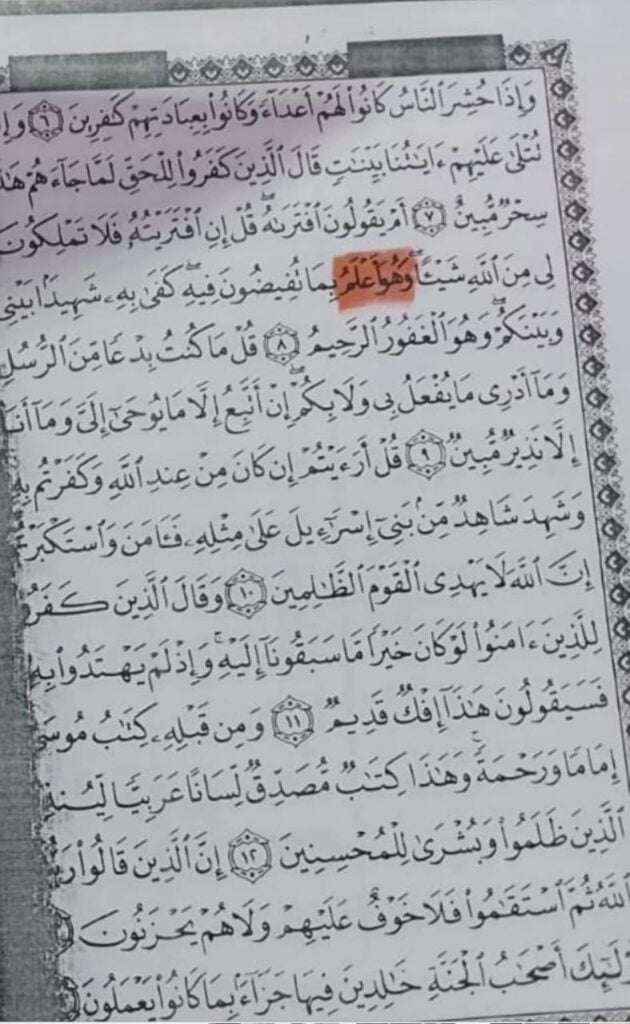 وَإِذَا حُشِرَ ٱلنَّاسُ كَانُوا۟ لَهُمْ أَعْدَآءً وَكَانُوا۟ بِعِبَادَتِهِمْ كَٰفِرِينَ ٦ وَإِ
تُتْلَىٰ عَلَيْهِمْ ءَايَٰتُنَا بَيِّنَٰتٍ قَالَ ٱلَّذِينَ كَفَرُوا۟ لِلْحَقِّ لَمَّا جَآءَهُمْ هَٰذَ
سِحْرٌ مُّبِينٌ ٧ أَمْ يَقُولُونَ ٱفْتَرَىٰهُ ۖ قُلْ إِنِ ٱفْتَرَيْتُهُۥ فَلَا تَمْلِكُونَ
لِى مِنَ ٱللَّهِ شَيْـًٔا ۖ وَهُوَ أَعْلَمُ بِمَا تُفِيضُونَ فِيهِ ۖ كَفَىٰ بِهِۦ شَهِيدًۢا بَيْنِى
وَبَيْنَكُمْ ۖ وَهُوَ ٱلْغَفُورُ ٱلرَّحِيمُ ٨ قُلْ مَا كُنتُ بِدْعًا مِّنَ ٱلرُّسُلِ
وَمَآ أَدْرِى مَا يُفْعَلُ بِى وَلَا بِكُمْ ۖ إِنْ أَتَّبِعُ إِلَّا مَا يُوحَىٰٓ إِلَىَّ وَمَآ أَنَا۠
إِلَّا نَذِيرٌ مُّبِينٌ ٩ قُلْ أَرَءَيْتُمْ إِن كَانَ مِنْ عِندِ ٱللَّهِ وَكَفَرْتُم بِهِ
وَشَهِدَ شَاهِدٌ مِّنۢ بَنِىٓ إِسْرَٰٓءِيلَ عَلَىٰ مِثْلِهِۦ فَـَٔامَنَ وَٱسْتَكْبَرْتُ
إِنَّ ٱللَّهَ لَا يَهْدِى ٱلْقَوْمَ ٱلظَّٰلِمِينَ ١٠ وَقَالَ ٱلَّذِينَ كَفَرُو
لِلَّذِينَ ءَامَنُوا۟ لَوْ كَانَ خَيْرًا مَّا سَبَقُونَآ إِلَيْهِ ۚ وَإِذْ لَمْ يَهْتَدُوا۟ بِهِ
فَسَيَقُولُونَ هَٰذَآ إِفْكٌ قَدِيمٌ ١١ وَمِن قَبْلِهِۦ كِتَٰبُ مُوسَى
إِمَامًا وَرَحْمَةً ۚ وَهَٰذَا كِتَٰبٌ مُّصَدِّقٌ لِّسَانًا عَرَبِيًّا لِّيُنذِ
ٱلَّذِينَ ظَلَمُوا۟ وَبُشْرَىٰ لِلْمُحْسِنِينَ ١٢ إِنَّ ٱلَّذِينَ قَالُوا۟ رَبُّ
ٱللَّهُ ثُمَّ ٱسْتَقَٰمُوا۟ فَلَا خَوْفٌ عَلَيْهِمْ وَلَا هُمْ يَحْزَنُونَ
و۟لَٰٓئِكَ أَصْحَٰبُ ٱلْجَنَّةِ خَٰلِدِينَ فِيهَا جَزَآءًۢ بِمَا كَانُوا۟ يَعْمَلُونَ